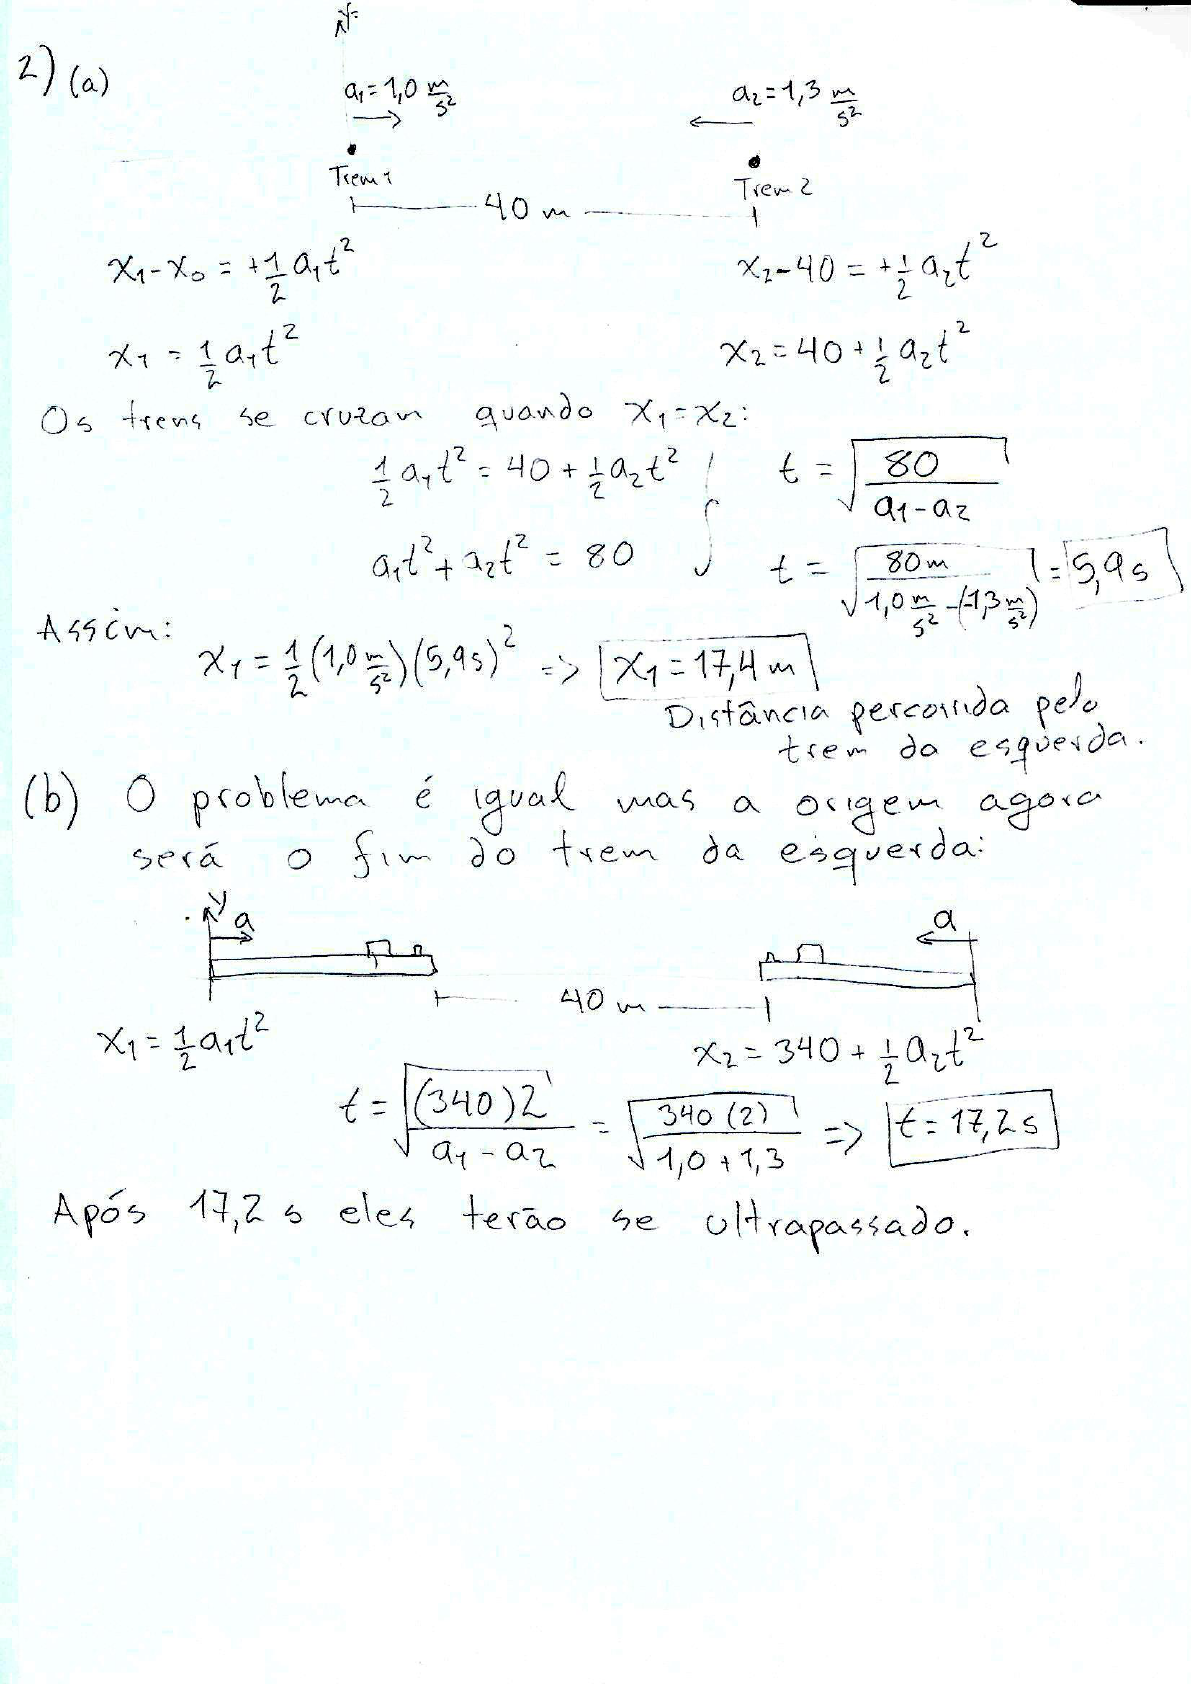 2) (a)
a₁=1,0 m/s²
a₂=1,3 m/s²
Trem 1
Trem 2
40 m
x₁-x₀ = +1/2 a₁t²
x₂-40 = +1/2 a₂t²
x₁ = 1/2 a₁t²
x₂=40+1/2 a₂t²
Os trens se cruzam quando x₁=x₂:
1/2 a₁t² = 40 + 1/2 a₂t²
t = √(80/(a₁-a₂))
a₁t² + a₂t² = 80
t = √(80m/(1,0 m/s² -(-1,3 m/s²))) = 5,9s
Assim:
x₁ = 1/2 (1,0 m/s²)(5,9s)² => x₁=17,4 m
Distância percorrida pelo
trem da esquerda.
(b) O problema é igual mas a origem agora
será o fim do trem da esquerda:
a
a
40 m
x₁ = 1/2 a₁t²
x₂ = 340 + 1/2 a₂t²
t = √((340)2/(a₁-a₂)) = √(340(2)/(1,0+1,3)) => t = 17,2s
Após 17,2 s eles terão se ultrapassado.